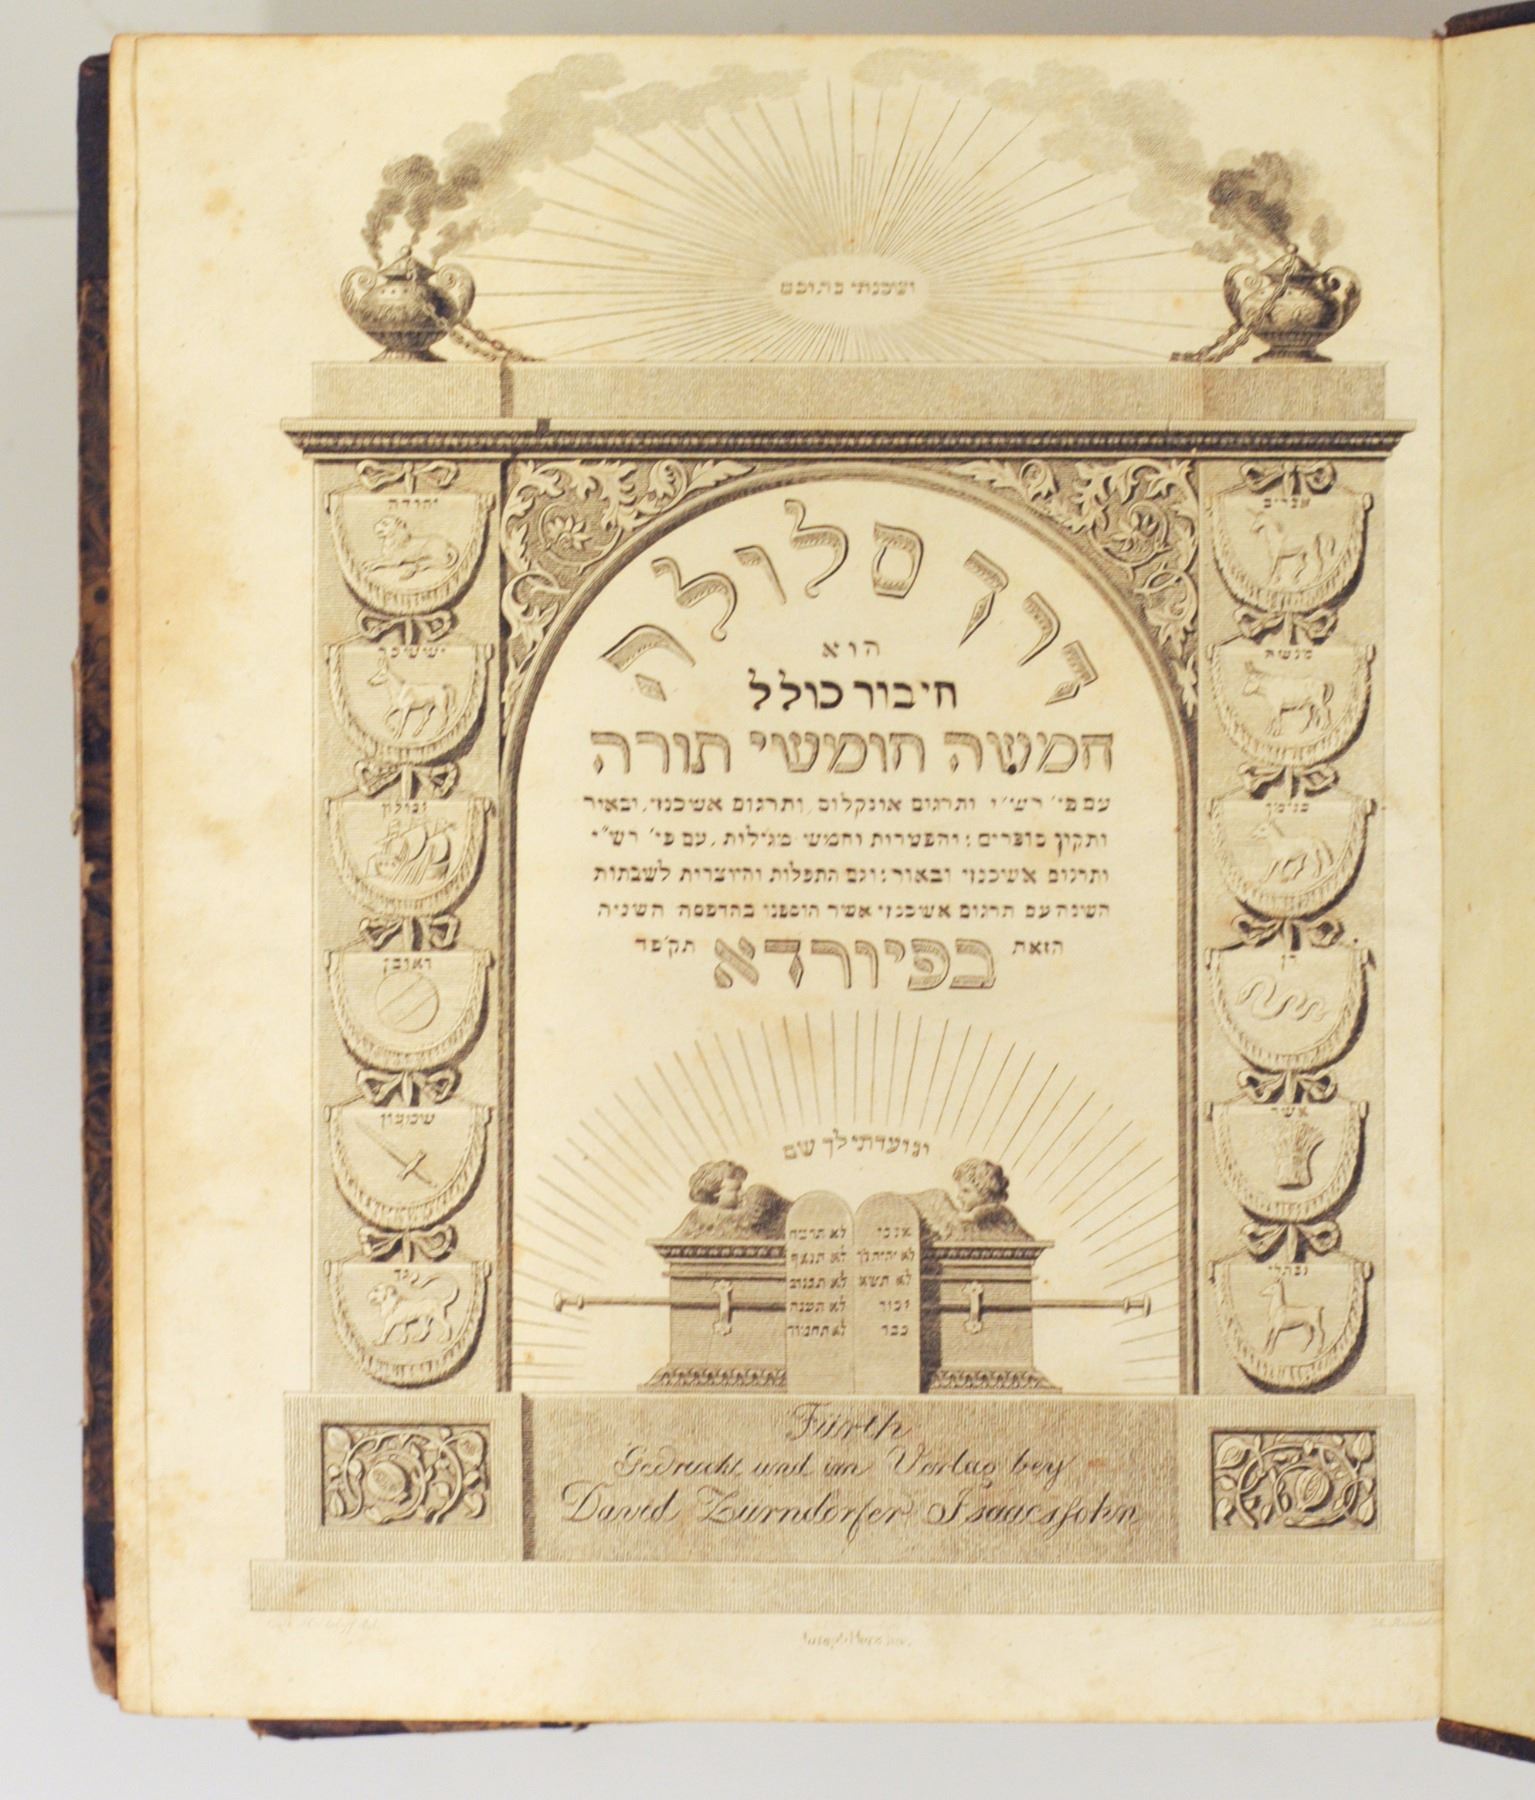 ושכנתי בתוכם
יהודה
אפרים
יששיכר
מנשה
זבולן
בנימין
ראובן
דן
שמעון
אשר
גד
נפתלי
דרך סלולה
הוא
חיבור כולל
חמשה חומשי תורה
עם פי׳ רש״י ותרגום אונקלוס, ותרגום אשכנזי, ובאור
ותקון סופרים: והפטרות וחמשי מגילות, עם פי׳ רש״י
ותרגום אשכנזי ובאור: וגם התפלות והיוצרות לשבתות
השנה עם תרגום אשכנזי אשר הוספנו בהדפסה השניה
הזאת בפיורדא תק׳פד
ונועדתי לך שם
אנכי
לא יהיה לך
לא תשא
זכור
כבד
לא תרצח
לא תנאף
לא תגנוב
לא תענה
לא תחמוד
Fürth
Gedruckt und im Verlag bey
David Zürndorfer Isaacssohn